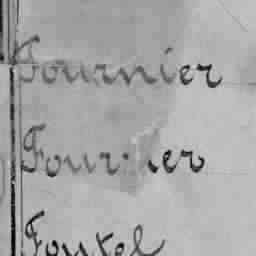 Fournier
Fournier
Foutel